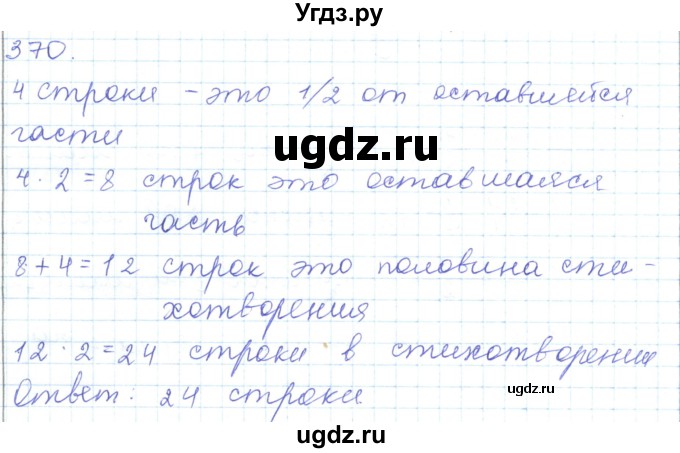 Угдз.ру
370.
4 строки - это 1/2 от оставшейся
части
ugdz.ru
4 · 2 = 8 строк это оставшаяся
часть
8 + 4 = 12 строк это половина сти-
хотворения
ugdz.ru
12 · 2 = 24 строки в стихотворении
Ответ: 24 строки
ugdz.ru
ugdz.ru